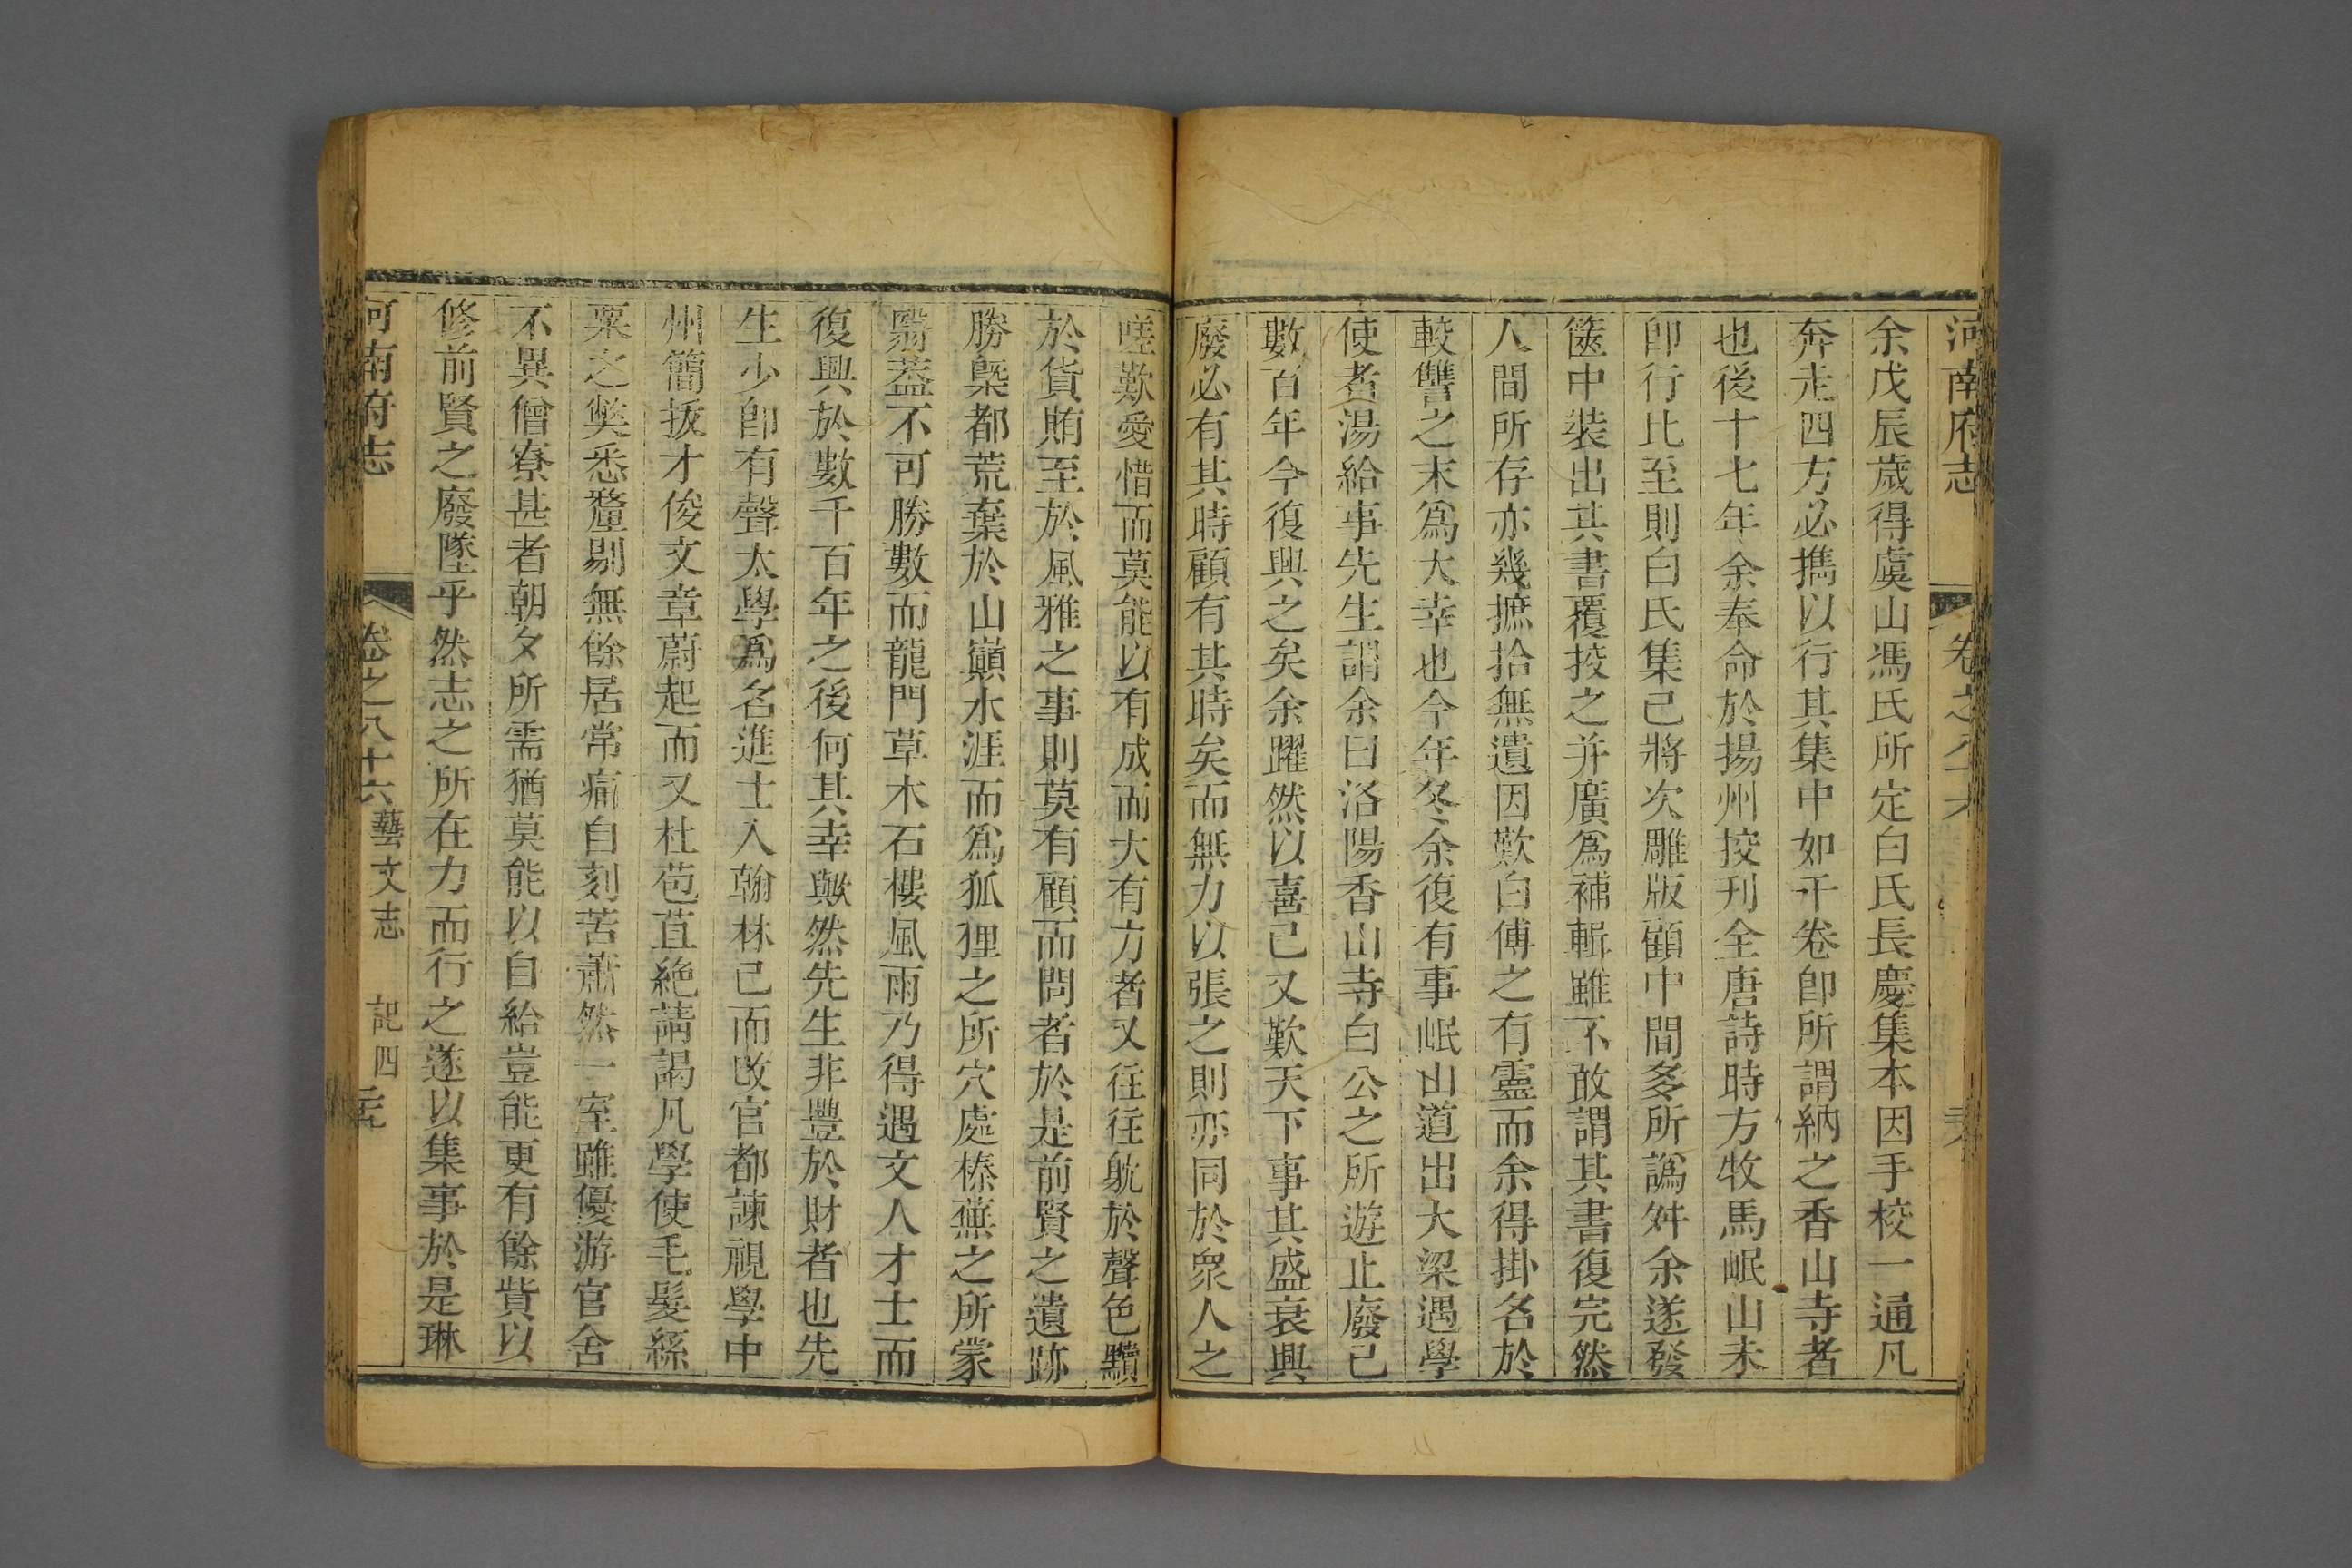 河南府志
卷之八十六
余戊辰歲得虞山馮氏所定白氏長慶集本因手校一通凡
奔走四方必攜以行其集中如干卷卽所謂納之香山寺者
也後十七年余奉命於揚州挍刊全唐詩時方牧馬岷山未
卽行比至則白氏集已將次雕版顧中間多所譌舛余遂發
篋中裝出其書覆挍之并廣爲補輯雖不敢謂其書復完然
人間所存亦幾摭拾無遺因歎白傅之有靈而余得掛名於
較讐之末爲大幸也今年冬余復有事岷山道出大梁遇學
使者湯給事先生謂余曰洛陽香山寺白公之所遊止廢已
數百年今復興之矣余躍然以喜已又歎天下事其盛衰興
廢必有其時顧有其時矣而無力以張之則亦同於衆人之
嗟歎愛惜而莫能以有成而大有力者又往往躭於聲色黷
於貨賄至於風雅之事則莫有顧而問者於是前賢之遺跡
勝槩都荒棄於山巓水涯而爲狐狸之所穴處榛蕪之所蒙
翳葢不可勝數而龍門草木石樓風雨乃得遇文人才士而
復興於數千百年之後何其幸歟然先生非豐於財者也先
生少卽有聲太學爲名進士入翰林已而改官都諫視學中
州簡拔才俊文章蔚起而又杜苞苴絶請謁凡學使毛髮絲
粟之獘悉釐剔無餘居常痛自刻苦蕭然一室雖優游官舍
不異僧寮甚者朝夕所需猶莫能以自給豈能更有餘貲以
修前賢之廢墜乎然志之所在力而行之遂以集事於是琳
河南府志
卷之八十六
藝文志 記四